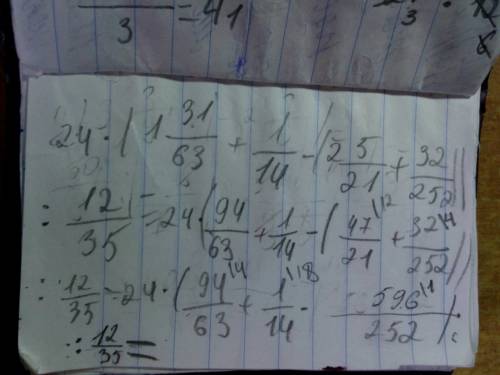 3 = 41
3
24 · ( 1 31/63 + 1/14 - ( 2 5/21 + 32/252 ))
: 12/35 = 24 · ( 94/63 + 1/14 - ( 47/21 \12 + 32/252 ))
: 12/35 = 24 · ( 94/63 \4 + 1/14 \18 - 596/252 \1 ) :
: 12/35 =